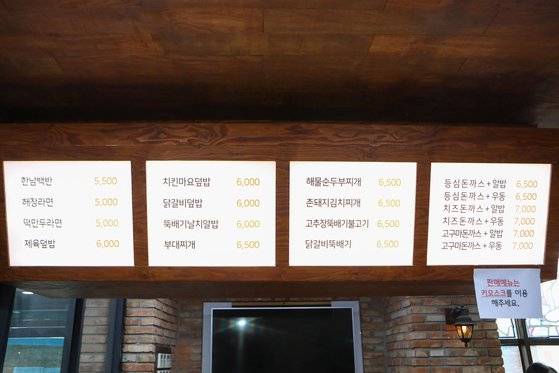 한남백반 5,500
해장라면 5,000
떡만두라면 5,000
제육덮밥 6,000
치킨마요덮밥 6,000
닭갈비덮밥 6,000
뚝배기날치알밥 6,000
부대찌개 6,500
해물순두부찌개 6,500
촌돼지김치찌개 6,500
고추장뚝배기불고기 6,500
닭갈비뚝배기 6,500
등심돈까스+알밥 6,500
등심돈까스+우동 6,500
치즈돈까스+알밥 7,000
치즈돈까스+우동 7,000
고구마돈까스+알밥 7,000
고구마돈까스+우동 7,000
판매메뉴는
키오스크를 이용
해주세요.